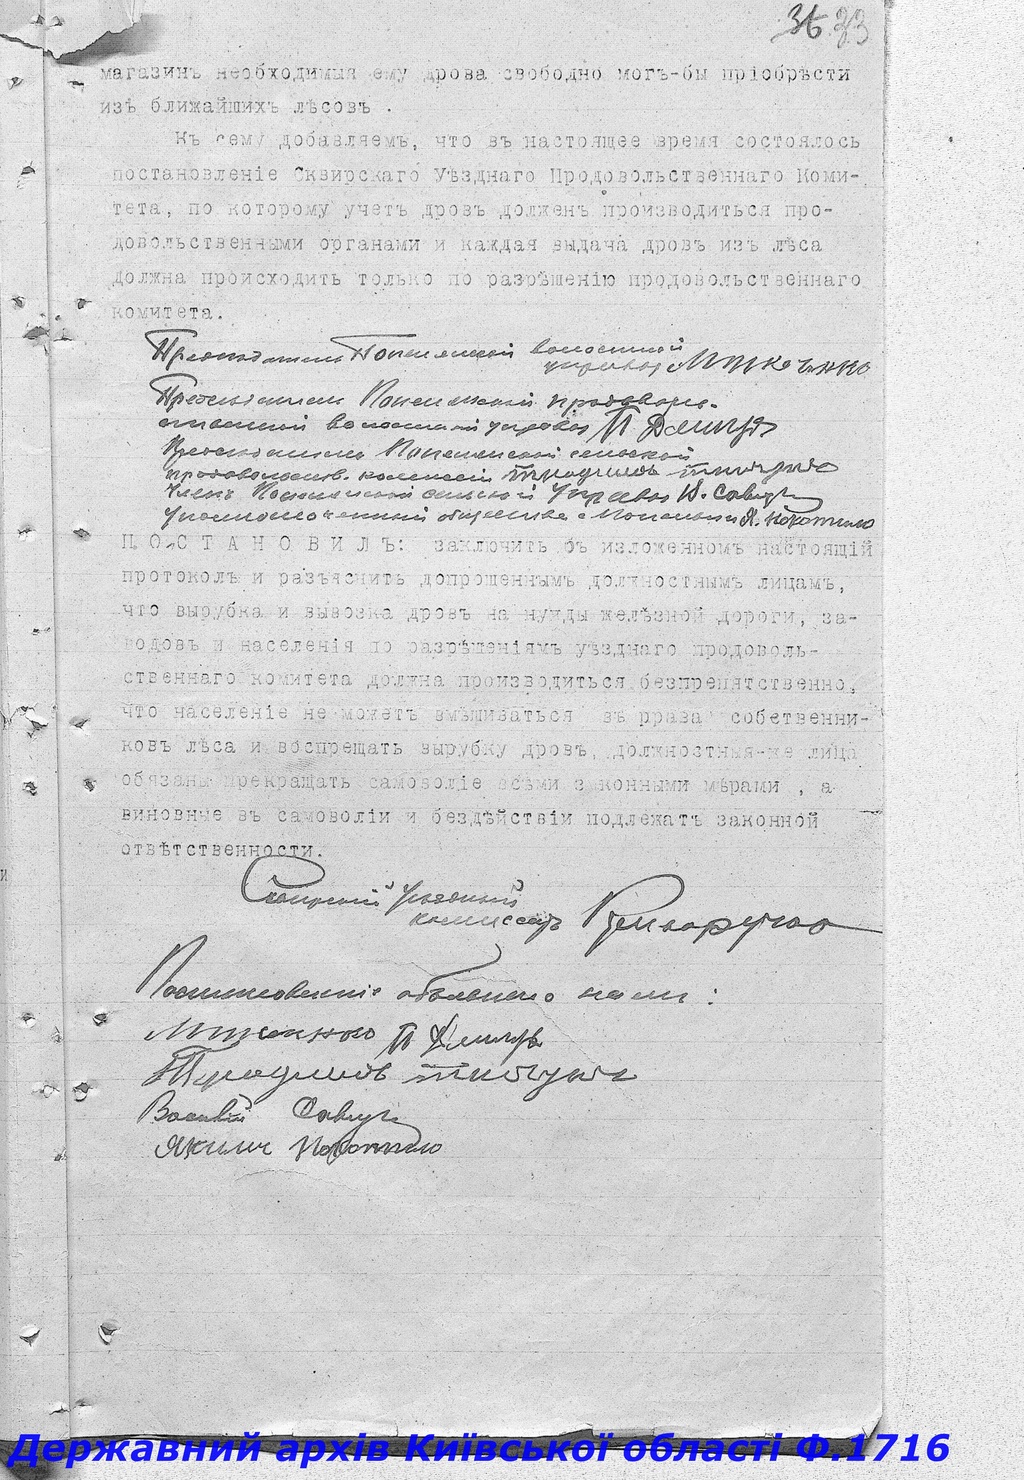 33
магазинъ необходимыя ему дрова свободно могъ-бы пріобрѣсти
изъ ближайшихъ лѣсовъ .
Къ сему добавляемъ, что въ настоящее время состоялось
постановленіе Сквирскаго Уѣзднаго Продовольственнаго Коми-
тета, по которому учетъ дровъ долженъ производиться про-
довольственными органами и каждая выдача дровъ изъ лѣса
должна происходить только по разрѣшенію продовольственнаго
комитета.
Предсѣдатель волостной
управы
Предсѣдатель продоволь-
волостной управы П
Предсѣдатель сельской
Членъ сельской Управы В. Савчук
Уполномоченный общества Я.
П О С Т А Н О В И Л Ъ: заключить объ изложенномъ настоящій
протоколъ и разъяснить допрошеннымъ должностнымъ лицамъ,
что вырубка и вывозка дровъ на нужды желѣзной дороги, за-
водовъ и населенія по разрѣшеніямъ уѣзднаго продоволь-
ственнаго комитета должна производиться безпрепятственно,
что населеніе не можетъ вмѣшиваться въ права собственни-
ковъ лѣса и воспрещать вырубку дровъ, должностныя-же лица
обязаны прекращать самоволіе всѣми законными мѣрами , а
виновные въ самоволіи и бездѣйствіи подлежатъ законной
отвѣтственности.
Сквирскій Уѣздный
комиссаръ
Постановленіе объявлено нами:
П
Василій Савчук
Яким
Державний архів Київської області Ф.1716